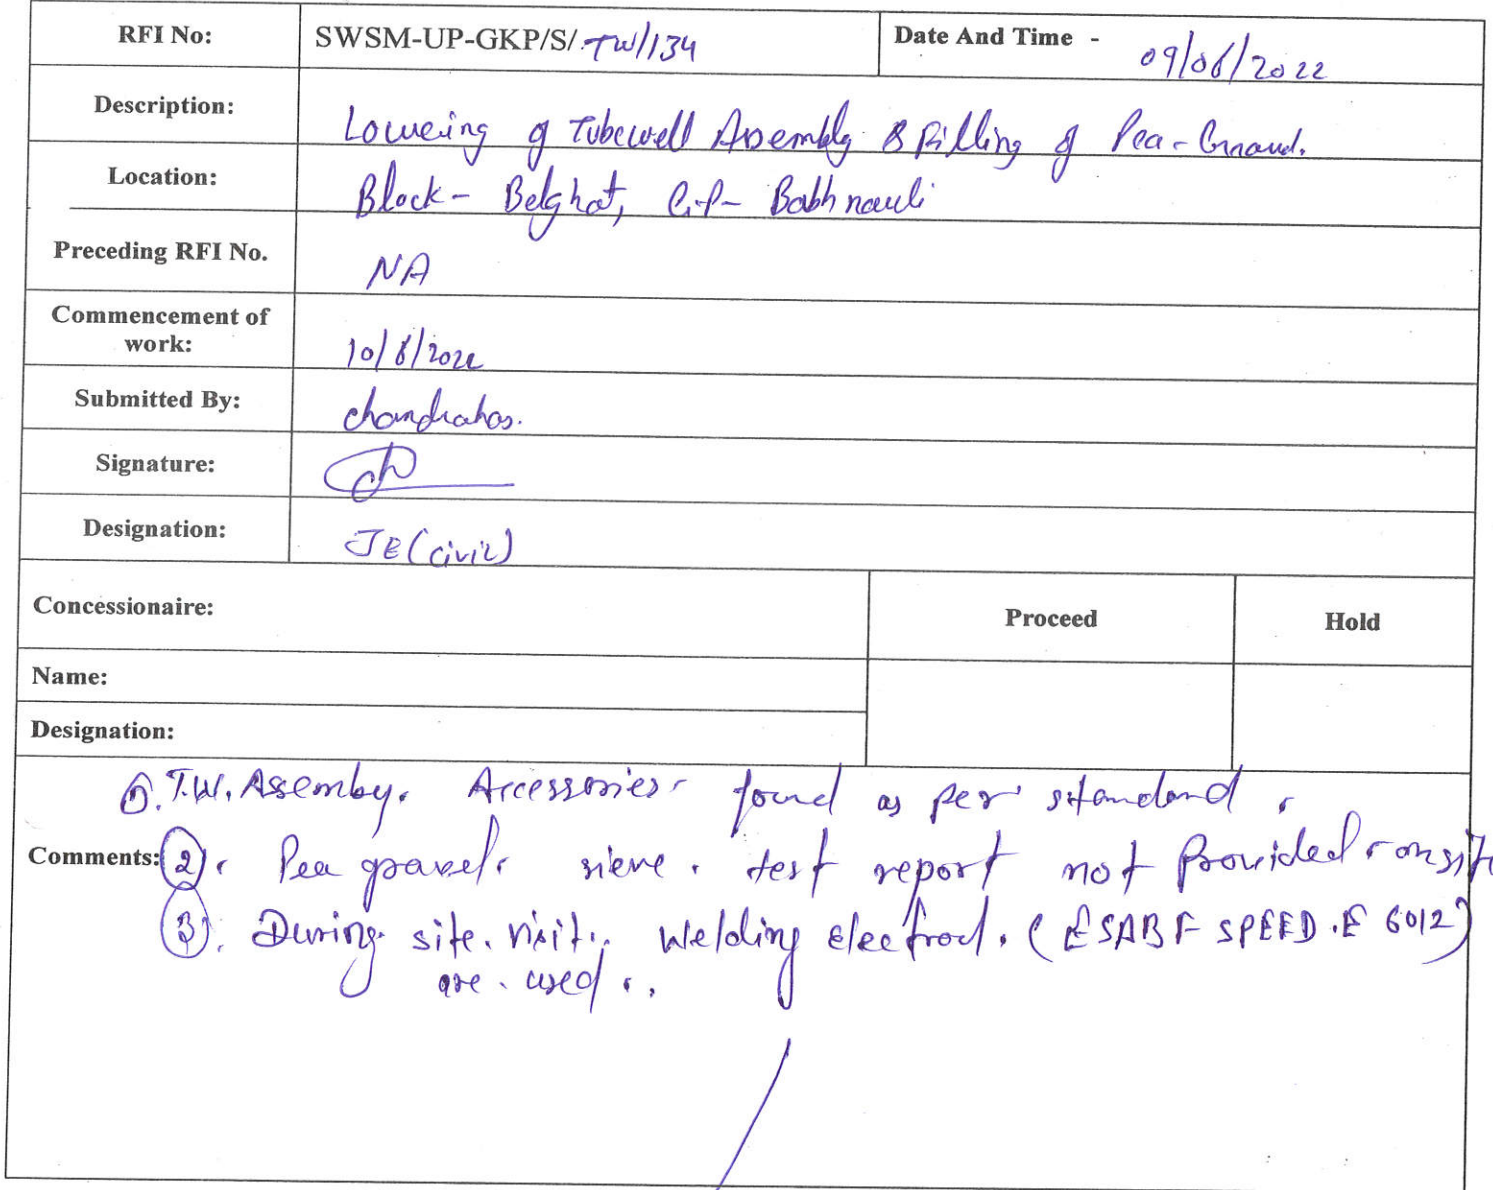 RFI No: SWSM-UP-GKP/S/ TW/134 Date And Time - 09/06/2022
Description: Lowering of Tubewell Assembly & Filling of Pea-Gravel.
Location: Block- Belghat, G.P- Babhnauli
Preceding RFI No. NA
Commencement of
work: 10/6/2022
Submitted By: Chandrahas.
Signature:
Designation: JE(Civil)
Concessionaire: Proceed Hold
Name:
Designation:
①. T.W. Assemby. Accessories found as per standard.
Comments: ②. Pea gravel. sieve. test report not Provided onsite
③. During site. visit. Welding electrod. (ESAB F SPEED.E 6012)
are. used.